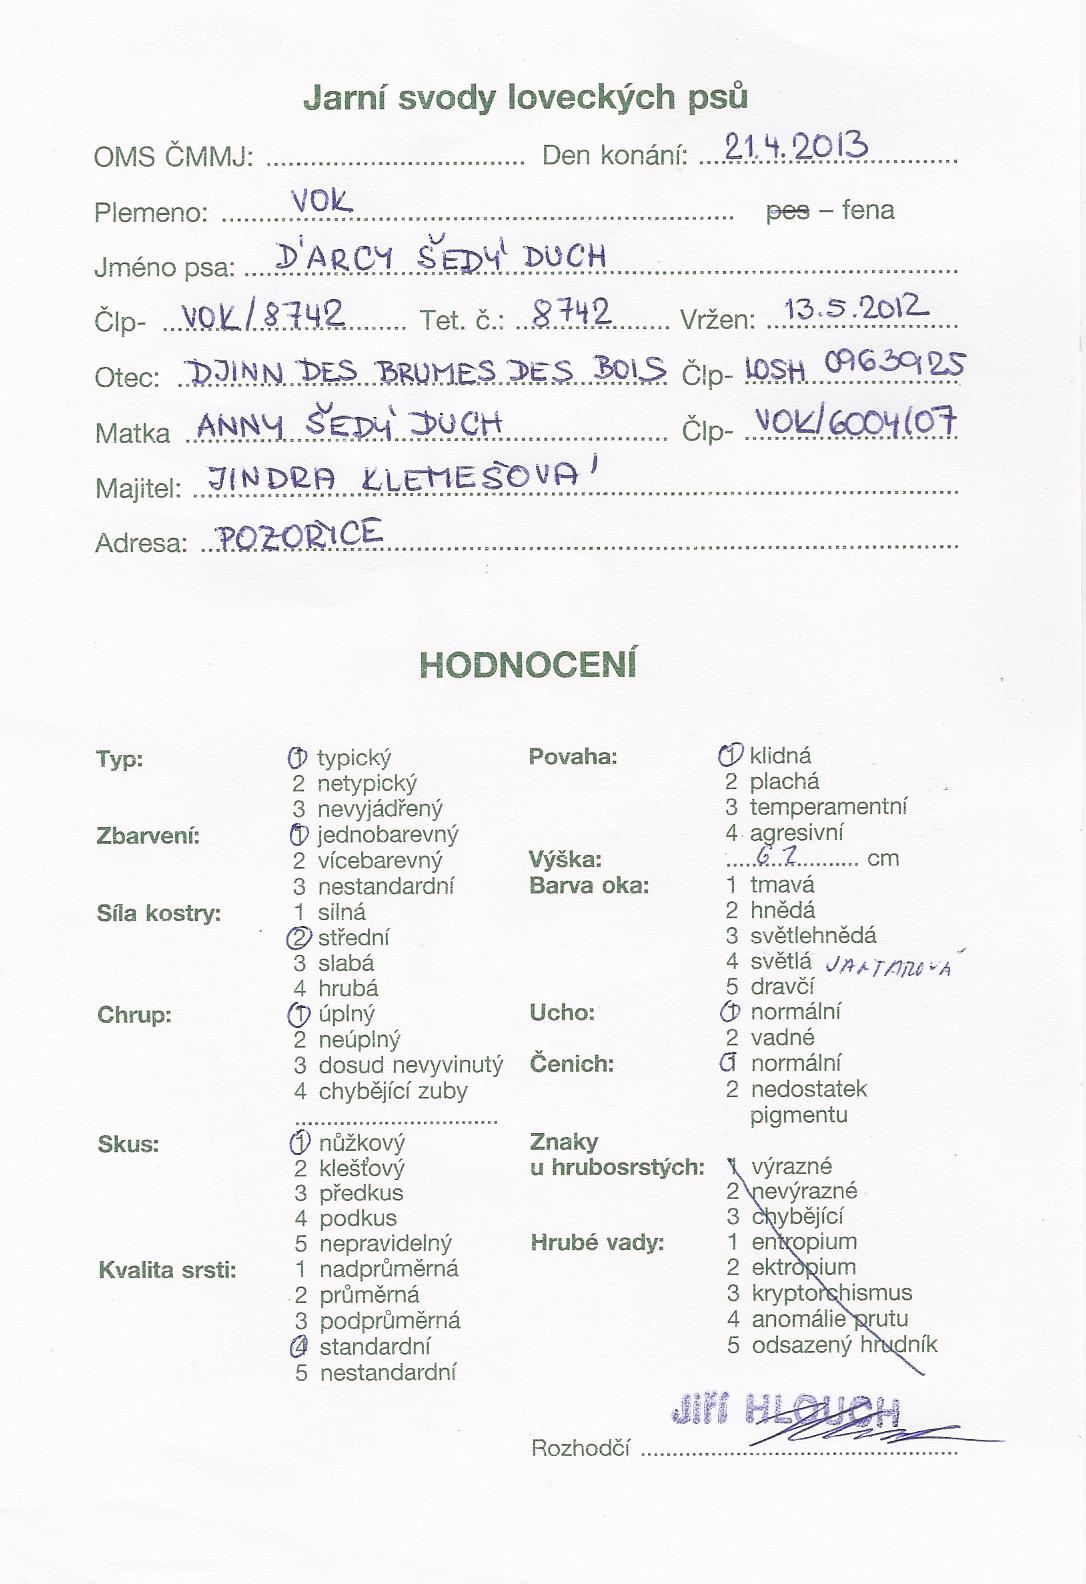 Jarní svody loveckých psů
OMS ČMMJ: ........ Den konání: 21.4.2013
Plemeno: VOK pes – fena
Jméno psa: D'ARCY ŠEDÝ DUCH
Člp- VOK/8742 Tet. č.: 8742 Vržen: 13.5.2012
Otec: DJINN DES BRUMES DES BOIS Člp- LOSH 09639125
Matka ANNY ŠEDÝ DUCH Člp- VOK/6004/07
Majitel: JINDRA KLEMEŠOVÁ
Adresa: POZOŘICE
HODNOCENÍ
Typ: 1 typický
2 netypický
3 nevyjádřený
Zbarvení: 1 jednobarevný
2 vícebarevný
3 nestandardní
Síla kostry: 1 silná
2 střední
3 slabá
4 hrubá
Chrup: 1 úplný
2 neúplný
3 dosud nevyvinutý
4 chybějící zuby
Skus: 1 nůžkový
2 klešťový
3 předkus
4 podkus
5 nepravidelný
Kvalita srsti: 1 nadprůměrná
2 průměrná
3 podprůměrná
4 standardní
5 nestandardní
Povaha: 1 klidná
2 plachá
3 temperamentní
4 agresivní
Výška: 62 cm
Barva oka: 1 tmavá
2 hnědá
3 světlehnědá
4 světlá JANTAROVÁ
5 dravčí
Ucho: 1 normální
2 vadné
Čenich: 1 normální
2 nedostatek
pigmentu
Znaky
u hrubosrstých: 1 výrazné
2 nevýrazné
3 chybějící
Hrubé vady: 1 entropium
2 ektropium
3 kryptorchismus
4 anomálie prutu
5 odsazený hrudník
Jiří HLOUCH
Rozhodčí